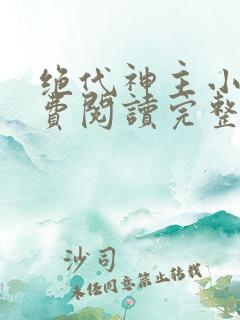 绝代神主小
費閱讀完整
沙司
未经同意禁止转载